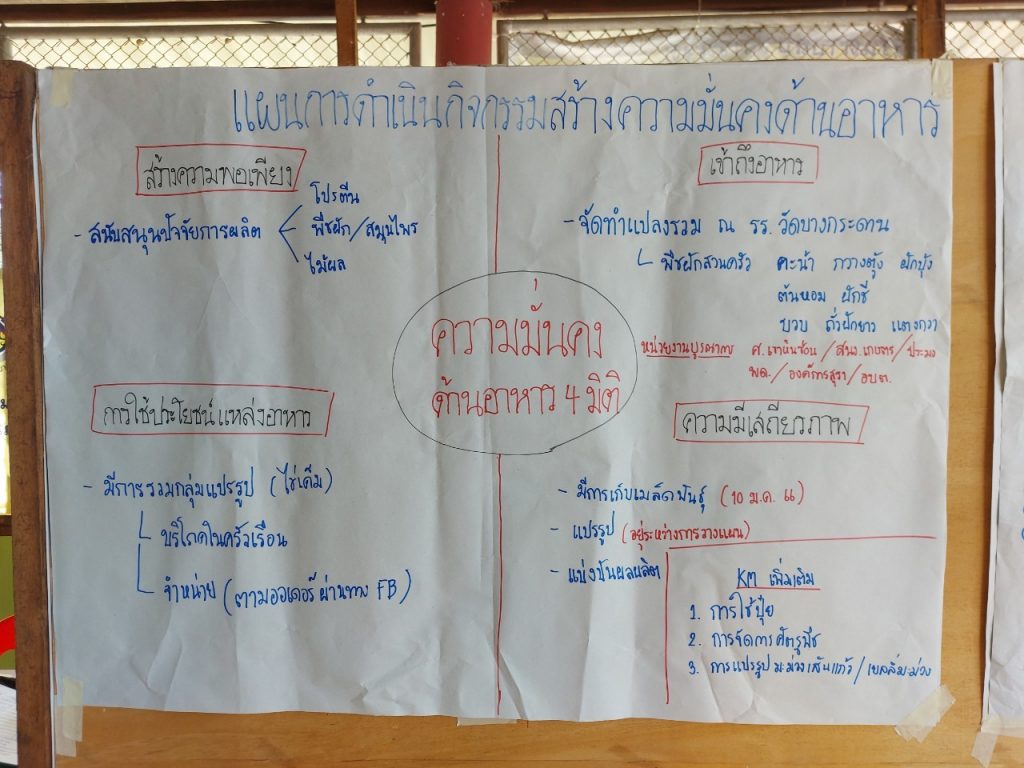 แผนการดำเนินกิจกรรมสร้างความมั่นคงด้านอาหาร
สร้างความพอเพียง
- สนับสนุนปัจจัยการผลิต
โปรตีน
พืชผัก/สมุนไพร
ไม้ผล
เข้าถึงอาหาร
- จัดทำแปลงรวม ณ รร. วัดบางกระดาน
พืชผักสวนครัว คะน้า กวางตุ้ง ผักบุ้ง
ต้นหอม ผักชี
บวบ ถั่วฝักยาว แตงกวา
หน่วยงานบูรณาการ ศ.เขาหินซ้อน/สนง.เกษตร/ประมง
พด./องค์การสุรา/อบต.
ความมั่นคง
ด้านอาหาร 4 มิติ
การใช้ประโยชน์แหล่งอาหาร
- มีการรวมกลุ่มแปรรูป (ไข่เค็ม)
บริโภคในครัวเรือน
จำหน่าย (ตามออเดอร์ ผ่านทาง FB)
ความมีเสถียรภาพ
- มีการเก็บเมล็ดพันธุ์ (10 ม.ค.)
- แปรรูป (อยู่ระหว่างการวางแผน)
- แบ่งปันผลผลิต
KM เพิ่มเติม
1. การใช้ปุ๋ย
2. การจัดการศัตรูพืช
3. การแปรรูป มะม่วงเส้นแก้ว/เยลลี่มะม่วง